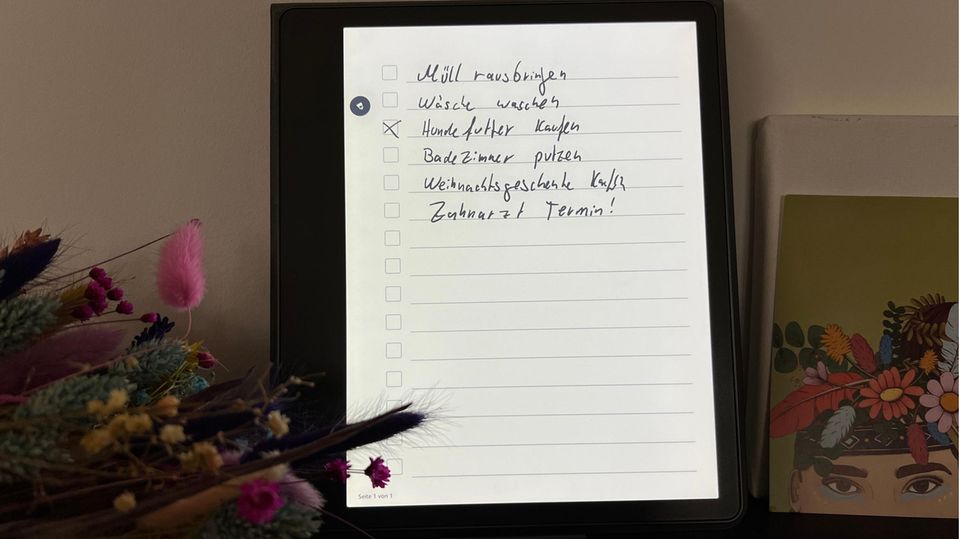 Müll rausbringen
Wäsche waschen
Hundefutter kaufen
Badezimmer putzen
Weihnachtsgeschenke kaufen
Zahnarzt Termin!
Seite 1 von 1